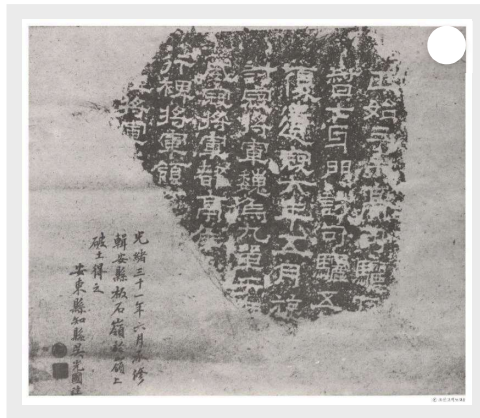 正始三年高句驪
督七牙門討句驪五
復遣寇六年五月旋
討寇將軍魏烏丸單于
威寇將軍都亭侯
行裨將軍領
將軍
光緒三十一年六月修
輯安縣板石嶺嶺上
破土得之
安東縣知縣吳光國注